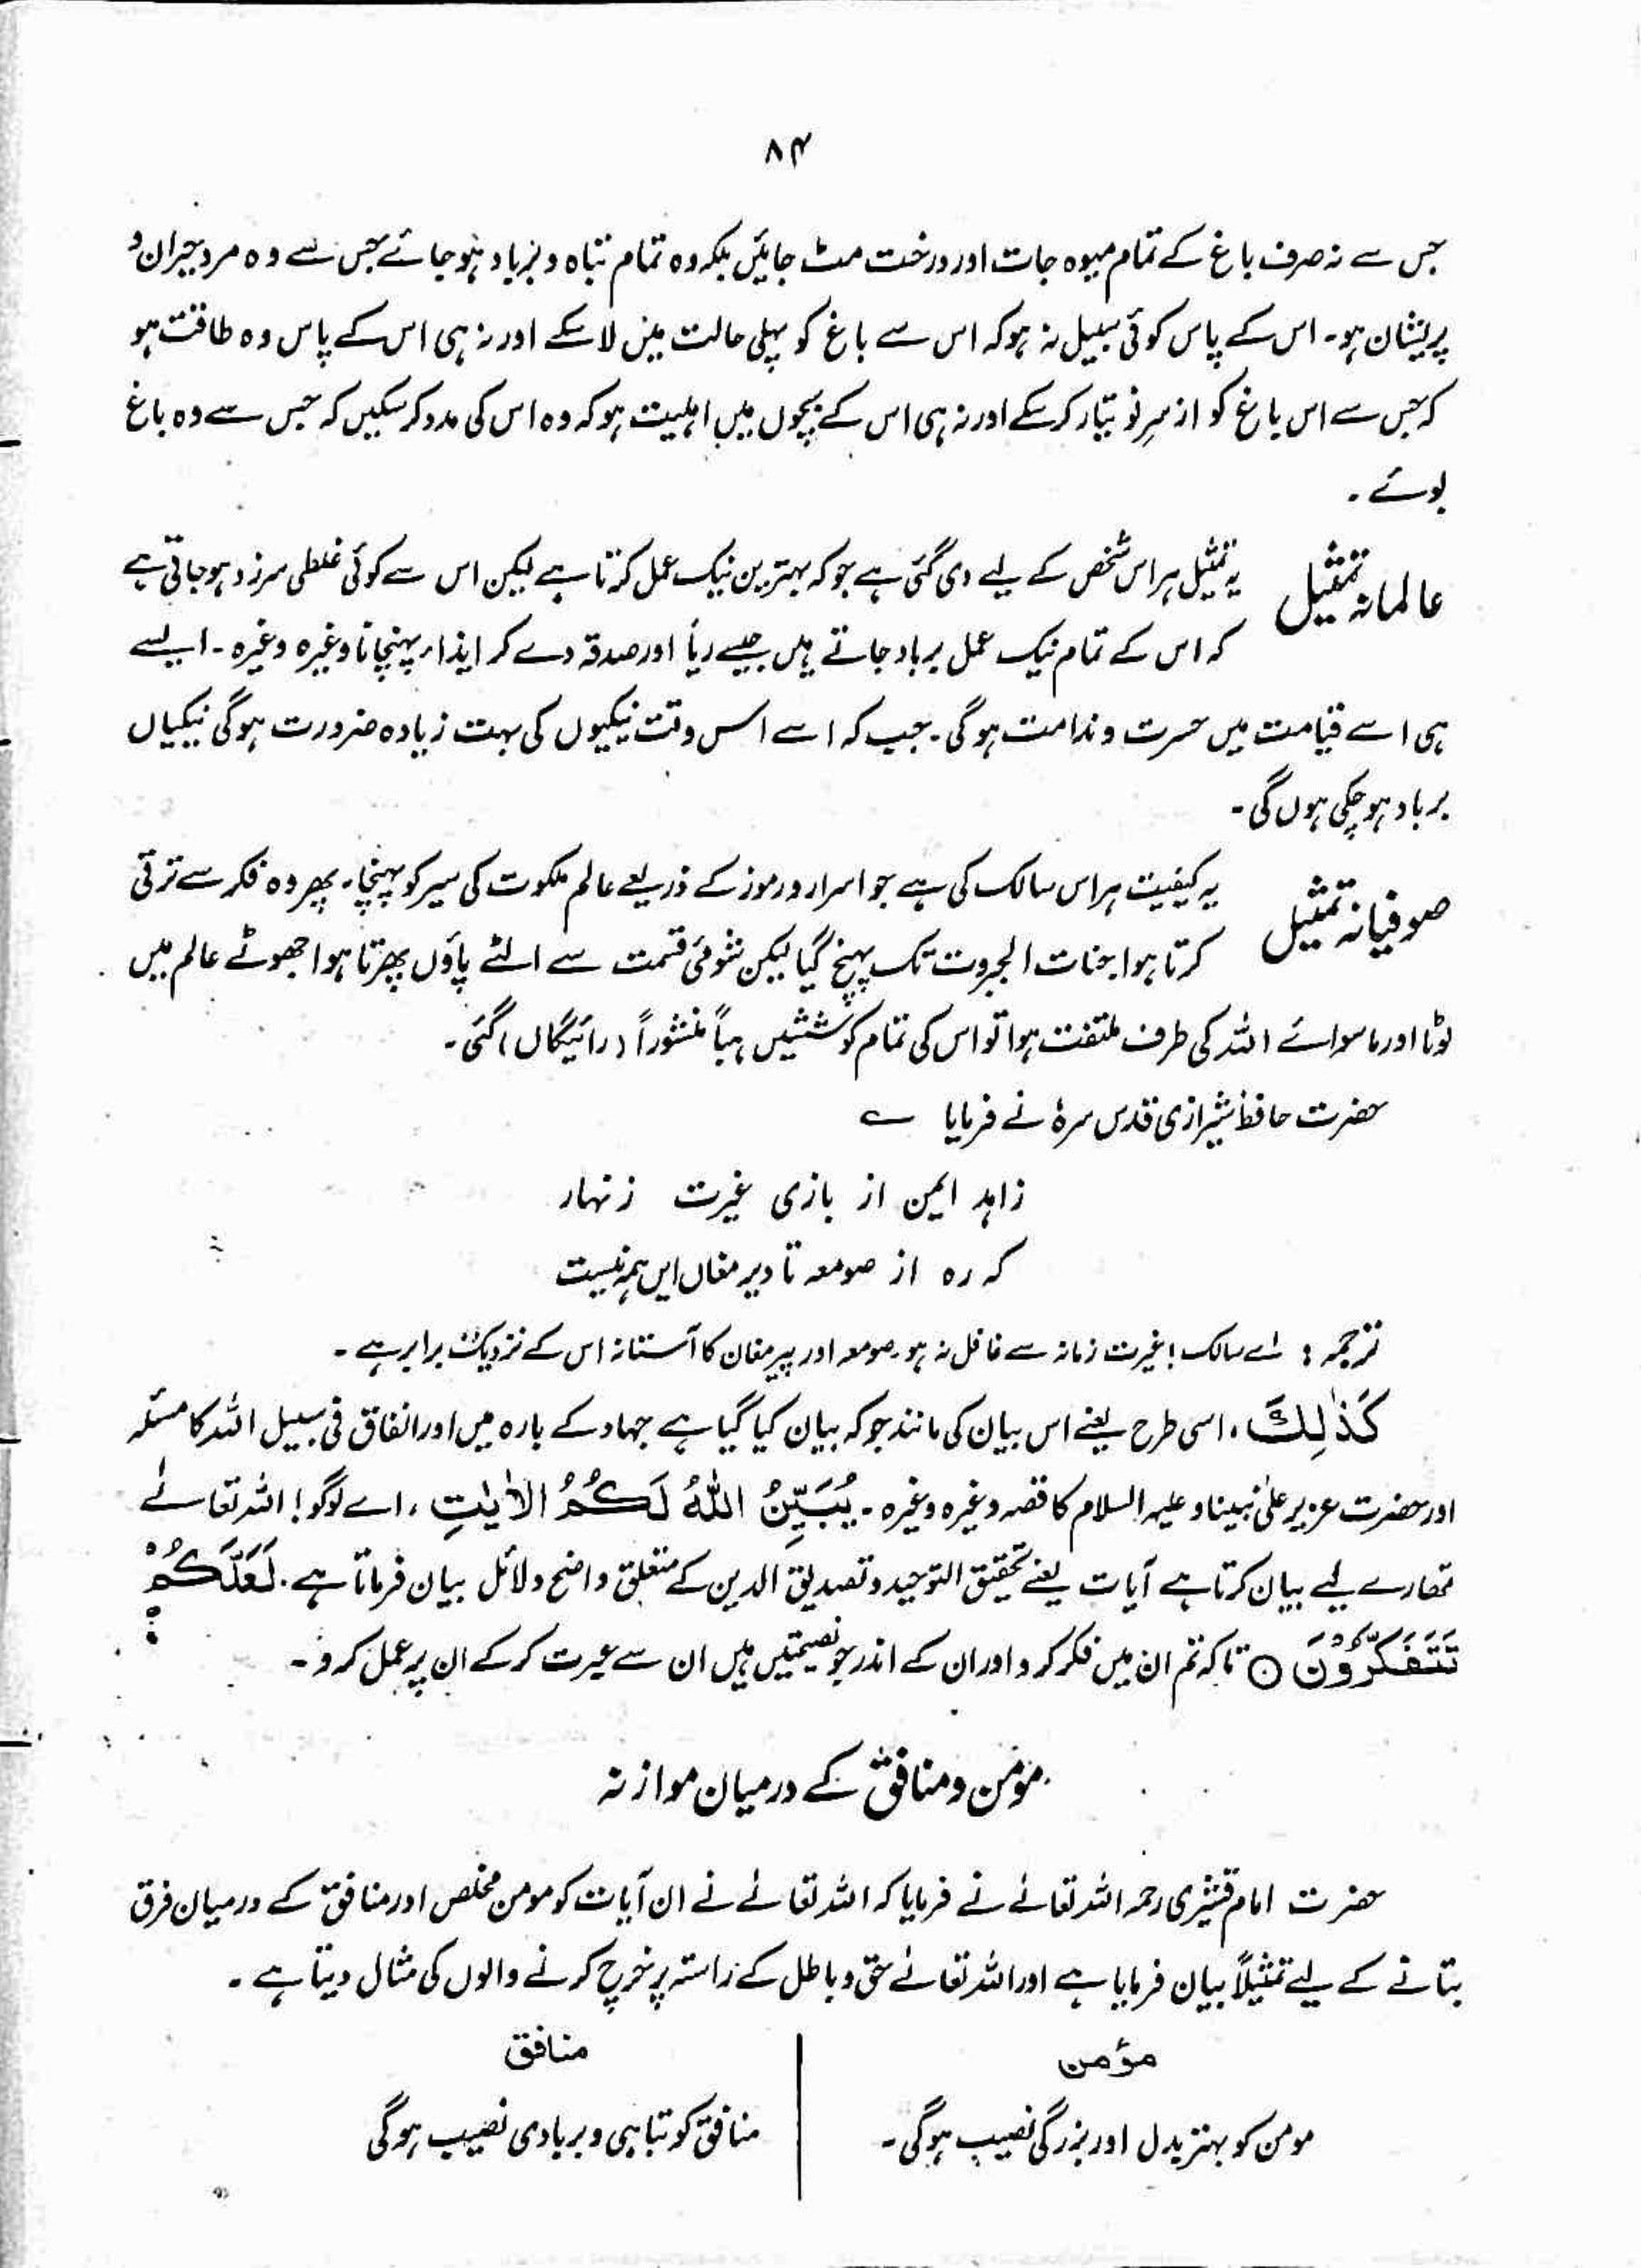 ۸۴
جس سے نہ صرف باغ کے تمام میوہ جات اور درخت مٹ جائیں بلکہ وہ تمام تباہ و برباد ہو جائے جس سے وہ مرد حیران و
پریشان ہو۔ اس کے پاس کوئی سبیل نہ ہو کہ اس سے باغ کو پہلی حالت میں لا سکے اور نہ ہی اس کے پاس وہ طاقت ہو
کہ جس سے اس باغ کو از سرِ نو تیار کر سکے اور نہ ہی اس کے بچوں میں اہلیت ہو کہ وہ اس کی مدد کر سکیں کہ جس سے وہ باغ
بوئے ۔
عالمانہ تمثیل یہ تمثیل ہر اس شخص کے لیے دی گئی ہے جو کہ بہترین نیک عمل کرتا ہے لیکن اس سے کوئی غلطی سرزد ہو جاتی ہے
کہ اس کے تمام نیک عمل برباد جاتے ہیں جیسے ریأ اور صدقہ دے کر ایذاء پہنچانا وغیرہ وغیرہ ۔ ایسے
ہی اسے قیامت میں حسرت و ندامت ہو گی ۔ جب کہ اسے اس وقت نیکیوں کی بہت زیادہ ضرورت ہو گی نیکیاں
برباد ہو چکی ہوں گی ۔
صوفیانہ تمثیل یہ کیفیت ہر اس سالک کی ہے جو اسرار و رموز کے ذریعے عالم ملکوت کی سیر کو پہنچا۔ پھر وہ فکر سے ترقی
کرتا ہوا جنات الجبروت تک پہنچ گیا لیکن شومئ قسمت سے الٹے پاؤں پھرتا ہوا جھوٹے عالم میں
لوٹا اور ماسوائے اللہ کی طرف ملتفت ہوا تو اس کی تمام کوششیں ہبأً منثوراً (رائیگاں) گئی ۔
حضرت حافظ شیرازی قدس سرہٗ نے فرمایا ؎
زاہد ایمن از بازی غیرت زنہار
کہ رہ از صومعہ تا دیر مغاں ایں ہمہ نیست
ترجمہ : اے سالک ! غیرت زمانہ سے غافل نہ ہو۔ صومعہ اور پیر مغان کا آستانہ اس کے نزدیک برابر ہے ۔
كَذٰلِكَ ، اسی طرح یعنے اس بیان کی مانند جو کہ بیان کیا گیا ہے جہاد کے بارہ میں اور انفاق فی سبیل اللہ کا مسئلہ
اور حضرت عزیر علیٰ نبینا و علیہ السلام کا قصہ وغیرہ وغیرہ ۔ يُبَيِّنُ اللّٰهُ لَكُمُ الْاٰيٰتِ ، اے لوگو ! اللہ تعالےٰ
تمھارے لیے بیان کرتا ہے آیات یعنے تحقیق التوحید و تصدیق الدین کے متعلق واضح دلائل بیان فرماتا ہے ۔ لَعَلَّكُمْ
تَتَفَكَّرُوْنَ ○ تاکہ تم ان میں فکر کرو اور ان کے اندر جو نصیحتیں ہیں ان سے عبرت کر کے ان پر عمل کرو ۔
مؤمن و منافق کے درمیان موازنہ
حضرت امام قشیری رحمہ اللہ تعالےٰ نے فرمایا کہ اللہ تعالےٰ نے ان آیات کو مومن مخلص اور منافق کے درمیان فرق
بتانے کے لیے تمثیلاً بیان فرمایا ہے اور اللہ تعالےٰ حق و باطل کے راستہ پر خرچ کرنے والوں کی مثال دیتا ہے ۔
مؤمن
مومن کو بہتر بدل اور بزرگی نصیب ہو گی ۔
منافق
منافق کو تباہی و بربادی نصیب ہو گی